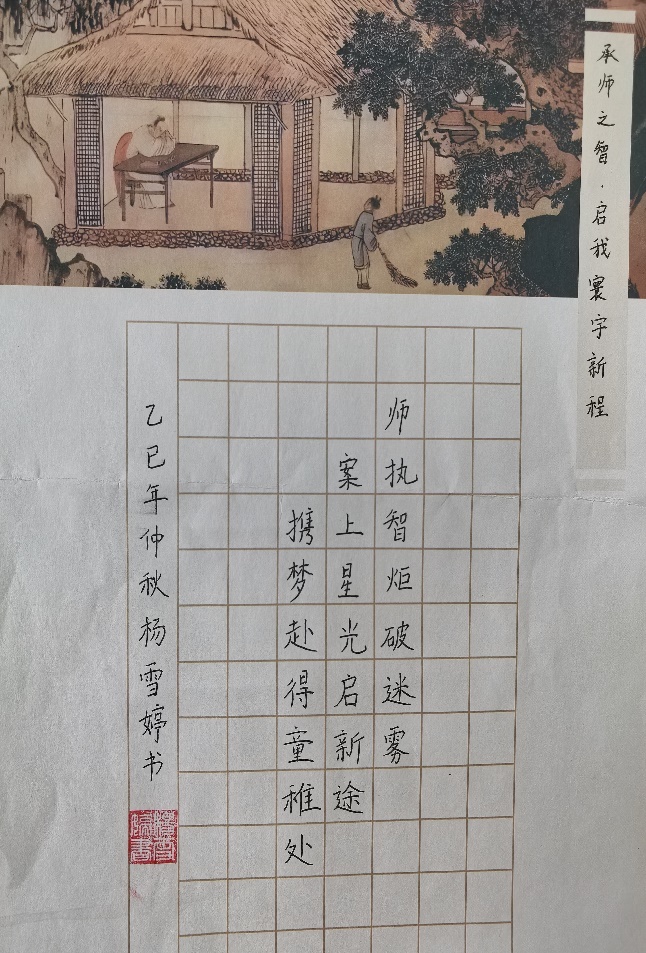 承师之智·启我寰宇新程
师执智炬破迷雾
案上星光启新途
携梦赴得童稚处
乙巳年仲秋杨雪婷书